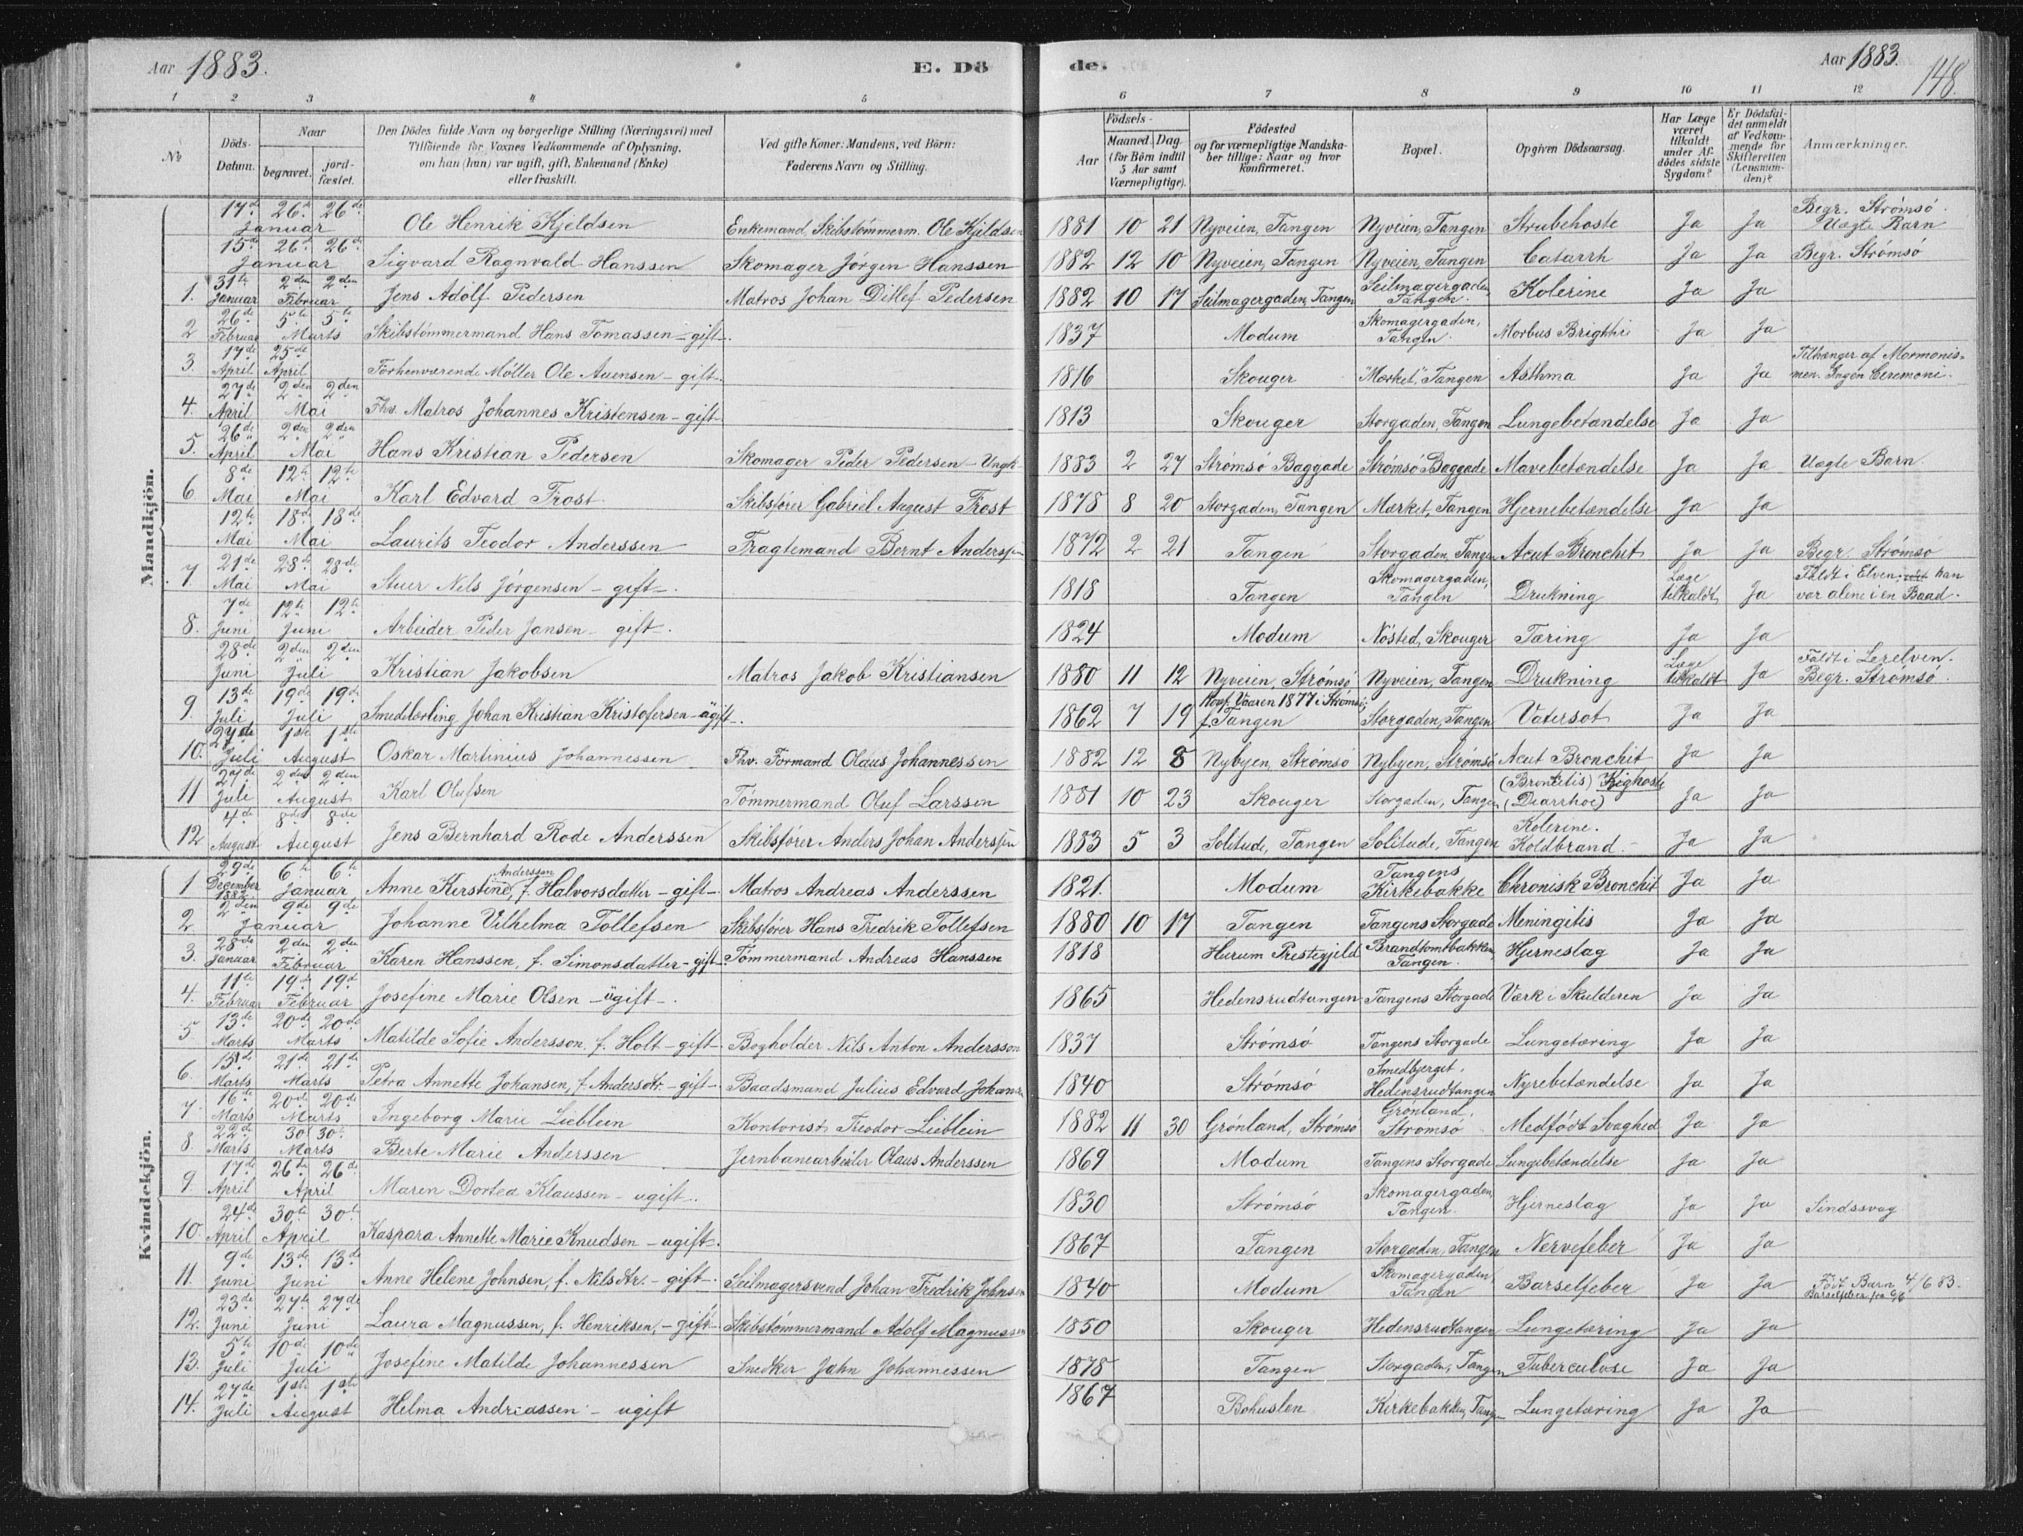 Aar 1883. E. Dö de. Aar 1883. 148.
1 2 3 4 5 6 7 8 9 10 11 12
No Döds-Datum. Naar begravet. jordfæstet. Den Dödes fulde Navn og borgerlige Stilling (Næringsvei) med Tilföiende for Voxnes Vedkommende af Oplysning, om han (hun) var ugift, gift, Enkemand (Enke) eller fraskilt. Ved gifte Koner: Mandens, ved Börn: Faderens Navn og Stilling. Födsels- Aar Maaned Dag (for Börn indtil 5 Aar samt Værnepligtige). Födested og for værnepligtige Mandskaber tillige: Naar og hvor konfirmeret. Bopæl. Opgiven Dödsaarsag. Har Læge været tilkaldt under Afdödes sidste Sygdom? Er Dödsfaldet anmeldt af Vedkommende for Skifteretten (Lensmanden)? Anmærkninger.
Mandkjön.
17de Januar 26de 26de Ole Henrik Kjeldsen Enkemand Skibstømmerm. Ole Kjeldsen 1881 10 21 Nyveien, Tangen Nyveien, Tangen Strubehoste Ja Ja Begr. Strømsø. Uægte Barn
15de Januar 26de 26de Sigvard Ragnvald Hanssen Skomager Jørgen Hanssen 1882 12 10 Nyveien, Tangen Nyveien, Tangen Catarrh Ja Ja Begr. Strømsø
1. 31te Januar 2den 2den Februar Jens Adolf Pedersen Matros Johan Ditlef Pedersen 1882 10 17 Seilmagergaden, Tangen Seilmagergaden, Tangen. Kolerine Ja Ja
2 26de Februar 5te 5te Marts Skibstømmermand Hans Tomassen - gift -. 1837 Modum Skomagergaden, Tangen. Morbus Brighthii Ja Ja
3. 17de April 25de April Forhenværende Møller Ole Auensen - gift -. 1816 Skouger "Mærket", Tangen Asthma Ja Ja Tilhænger af Mormonismen. Ingen Ceremoni.
4. 27de April 2den 2den Mai Fhv. Matros Johannes Kristensen - gift - 1813 Skouger Storgaden, Tangen Lungebetændelse Ja Ja
5. 26de April 2den 2den Mai Hans Kristian Pedersen Skomager Peder Pedersen - Ungk. 1883 2 27 Strømsø Baggade Strømsø Baggade Mavebetændelse Ja Ja Uægte Barn
6 8de Mai 12te 12te Mai Karl Edvard Frost. Skibsfører Gabriel August Frost 1878 8 20 Storgaden, Tangen Mærket, Tangen Hjernebetændelse Ja Ja
12te Mai 18de 18de Mai Laurits Teodor Anderssen Fragtemand Bernt Anderssen 1872 2 21 Tangen Storgaden, Tangen Acut Bronchit Ja Ja Begr. Strømsø
7 21de Mai 28de 28de Mai Stuer Nils Jørgensen - gift -. 1818 Tangen Skomagergaden, Tangen Drukning Læge tilkaldt Ja Faldt i Elven, han var alene i en Baad.
8. 7de Juni 12te 12te Juni Arbeider Peder Jansen - gift -. 1824 Modum Nøsted, Skouger Tæring Ja Ja
28de Juni 2den 2den Juli Kristian Jakobsen Matros Jakob Kristiansen 1880 11 12 Nyveien, Strømsø Nyveien, Tangen Drukning Læge tilkaldt Ja Faldt i Lerelven. Begr. Strømsø.
9 13de Juli 19de 19de Juli Smedelærling Johan Kristian Kristofersen - ugift -. 1862 7 19 Konf. Vaaren 1877 i Strømsø; f. Tangen Storgaden, Tangen Vatersot Ja Ja
10. 27de Juli 1ste 1ste August Oskar Martinius Johannessen Fhv. Formand Olaus Johannessen 1882 12 8 Nybyen, Strømsø Nybyen, Strømsø Acut Bronchit Ja Ja
11 27de Juli 2den 2den August Karl Olufsen Tømmermand Oluf Larssen 1881 10 23 Skouger Storgaden, Tangen (Bronkitis) Kighoste (Diarrhoe) Ja Ja
12 4de August 8de 8de August Jens Bernhard Rode Anderssen Skibsfører Anders Johan Anderssen 1883 5 3 Solitude, Tangen Solitude, Tangen Kolerine. Koldbrand. Ja Ja
Kvindekjön.
1 29de December 1882 6te 6te Januar Anne Kirstine Anderssen, f. Halvorsdatter - gift - Matros Andreas Anderssen 1821. Modum Tangens Kirkebakke Chronisk Bronchit Ja Ja
2. 2den Januar 9de 9de Johanne Vilhelma Tollefsen Skibsfører Hans Fredrik Tollefsen 1880 10 17 Tangen Tangens Storgade Meningitis Ja Ja
3. 28de Januar 2den 2den Februar Karen Hanssen, f. Simonsdatter - gift - Tømmermand Andreas Hanssen 1818 Hurum Prestegjeld Brandtomtbakken, Tangen. Hjerneslag Ja Ja
4. 11te Februar 19de 19de Februar Josefine Marie Olsen - ugift -. 1865 Hedensrudtangen Tangens Storgade Værk i Skulderen Ja Ja
5 13de Marts 20de 20de Marts Matilde Sofie Andersson, f. Holt - gift - Bogholder Nils Anton Andersson 1837 Strømsø Tangens Storgade Lungetæring Ja Ja
6. 15de Marts 21de 21de Marts Petra Annette Johansen, f. Andersdtr. - gift - Baadsmand Julius Edvard Johansen 1840 Strømsø Smedbjerget, Hedensrudtangen Nyrebetændelse Ja Ja
7. 16de Marts 20de 20de Marts Ingeborg Marie Lieblein Kontorist Teodor Lieblein 1882 11 30 Grønland, Strømsø Grønland, Strømsø Medfødt Svaghed Ja Ja
8. 22de Marts 30te 30te Marts Berte Marie Anderssen Jernbanearbeider Olaus Anderssen 1869 Modum Tangens Storgade Lungebetændelse Ja Ja
9. 17de April 26te 26de April Maren Dortea Klaussen - ugift -. 1830 Strømsø Skomagergaden, Tangen. Hjerneslag Ja Ja Sindssvag
10. 24de April 30te 30te April Kaspara Annette Marie Knudsen - ugift -. 1867 Tangen Storgaden, Tangen Nervefeber Ja Ja
11. 9de Juni 13de 13de Juni Anne Helene Johnsen, f. Nilsdtr. - gift -. Seilmagersvend Johan Fredrik Johnsen 1840 Modum Skomagergaden, Tangen Barselfeber Ja Ja Født Barn 4/6 83. Barselfeber fra 6/6
12. 23de Juni 27te 27de Juni Laura Magnussen, f. Henriksen, - gift - Skibstømmermand Adolf Magnussen 1850 Skouger Hedensrudtangen Lungetæring Ja Ja
13. 5te Juli 10de 10de Juli Josefine Matilde Johannessen Snedker John Johannessen 1878 Tangen Storgaden, Tangen Tuberculose Ja Ja
14. 27de Juli 1ste 1ste August Helma Andreassen - ugift 1867 Bohuslen Kirkebakken, Tangen Lungetæring Ja Ja